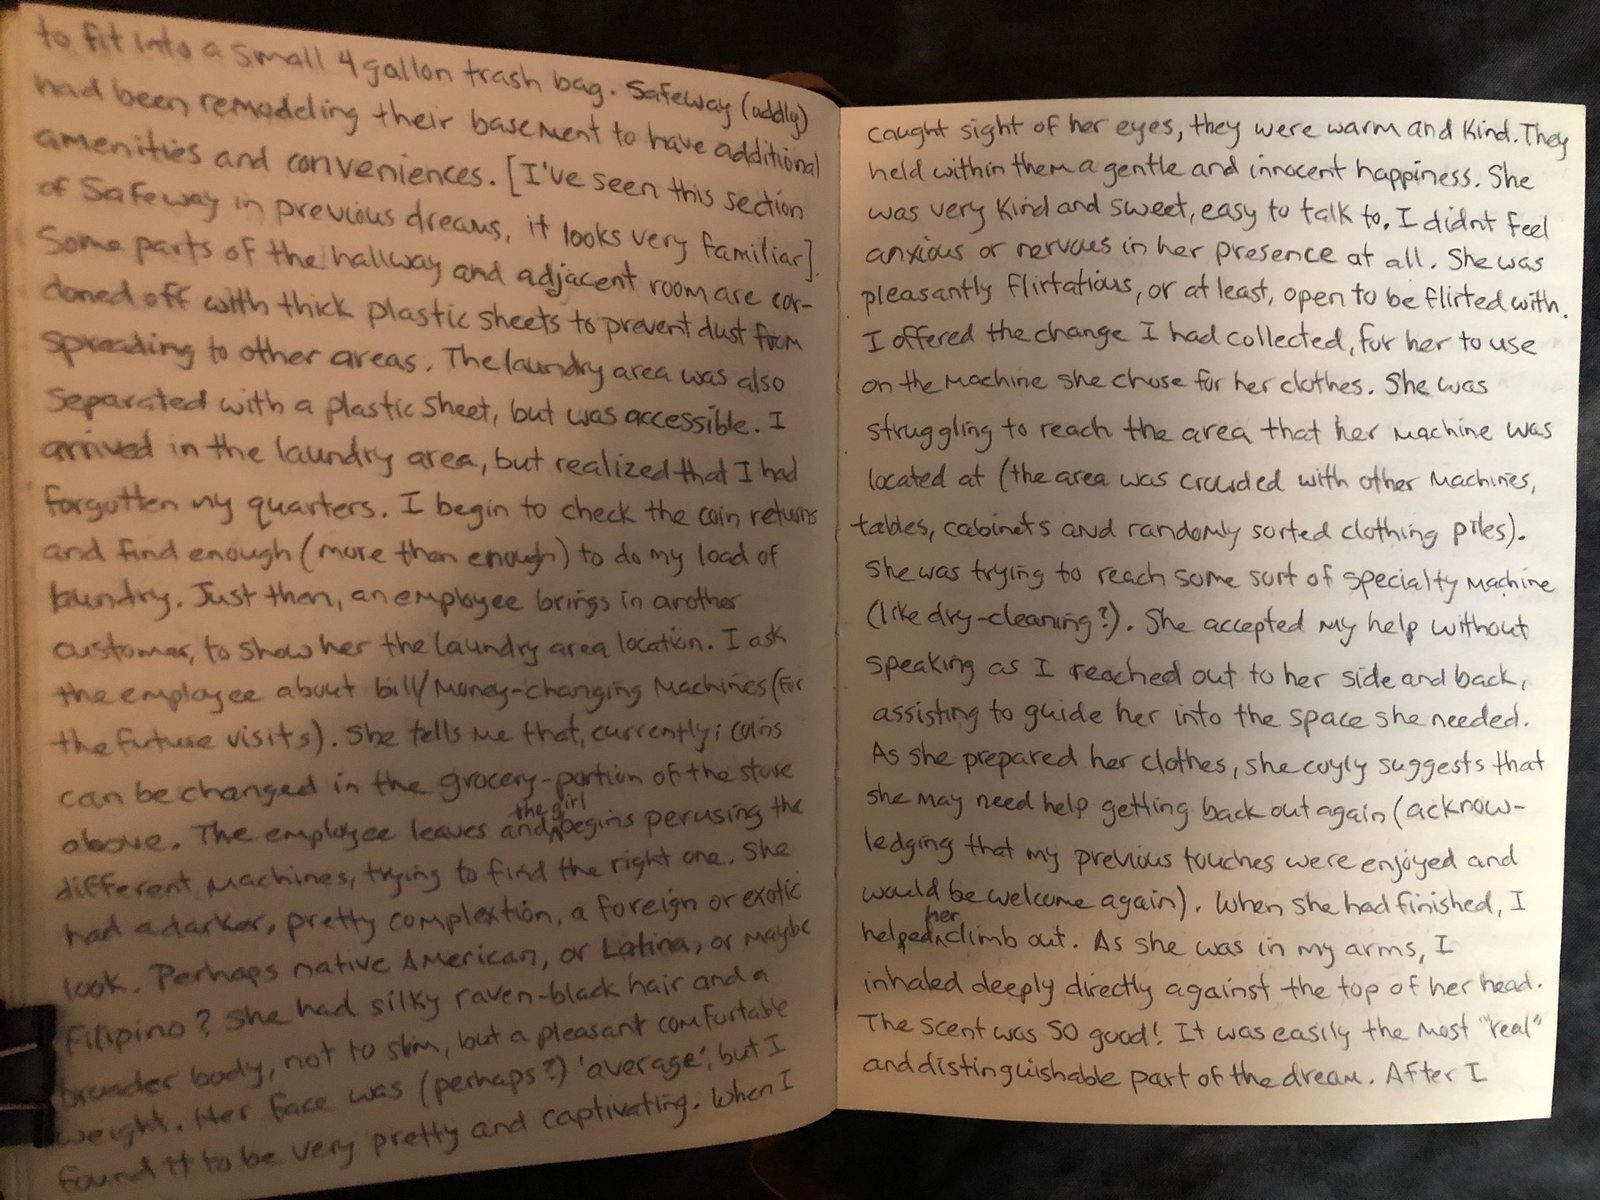 to fit into a small 4 gallon trash bag. Safeway (oddly)
had been remodeling their basement to have additional
amenities and conveniences. [I've seen this section
of Safeway in previous dreams, it looks very familiar].
Some parts of the hallway and adjacent room are cor-
doned off with thick plastic sheets to prevent dust from
spreading to other areas. The laundry area was also
separated with a plastic sheet, but was accessible. I
arrived in the laundry area, but realized that I had
forgotten my quarters. I begin to check the coin returns
and find enough (more than enough) to do my load of
laundry. Just then, an employee brings in another
customer, to show her the laundry area location. I ask
the employee about bill/money-changing machines (for
the future visits). She tells me that, currently; coins
can be changed in the grocery-portion of the store
above. The employee leaves and the girl begins perusing the
different machines, trying to find the right one. She
had a darker, pretty complextion, a foreign or exotic
look. Perhaps native American, or Latina, or maybe
Filipino? She had silky raven-black hair and a
broader body, not to slim, but a pleasant comfortable
weight. Her face was (perhaps?) 'average', but I
found it to be very pretty and captivating. When I
caught sight of her eyes, they were warm and kind. They
held within them a gentle and innocent happiness. She
was very kind and sweet, easy to talk to. I didnt feel
anxious or nervous in her presence at all. She was
pleasantly flirtatious, or at least, open to be flirted with.
I offered the change I had collected, for her to use
on the machine she chose for her clothes. She was
struggling to reach the area that her machine was
located at (the area was crowded with other machines,
tables, cabinets and randomly sorted clothing piles).
She was trying to reach some sort of specialty machine
(like dry-cleaning?). She accepted my help without
speaking as I reached out to her side and back,
assisting to guide her into the space she needed.
As she prepared her clothes, she coyly suggests that
she may need help getting back out again (acknow-
ledging that my previous touches were enjoyed and
would be welcome again). When she had finished, I
helped her climb out. As she was in my arms, I
inhaled deeply directly against the top of her head.
The scent was SO good! It was easily the most "real"
and distinguishable part of the dream. After I